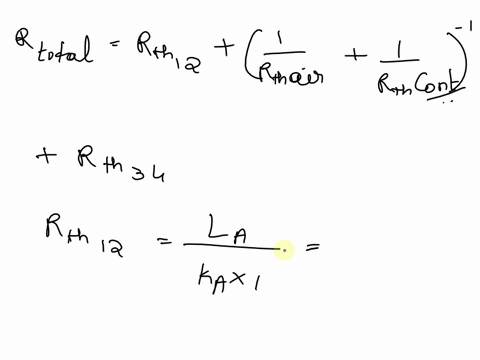 R total = Rth12 + (1/Rth air + 1/Rth Cont)^-1
+ Rth34
Rth12 = LA/kA×1 =